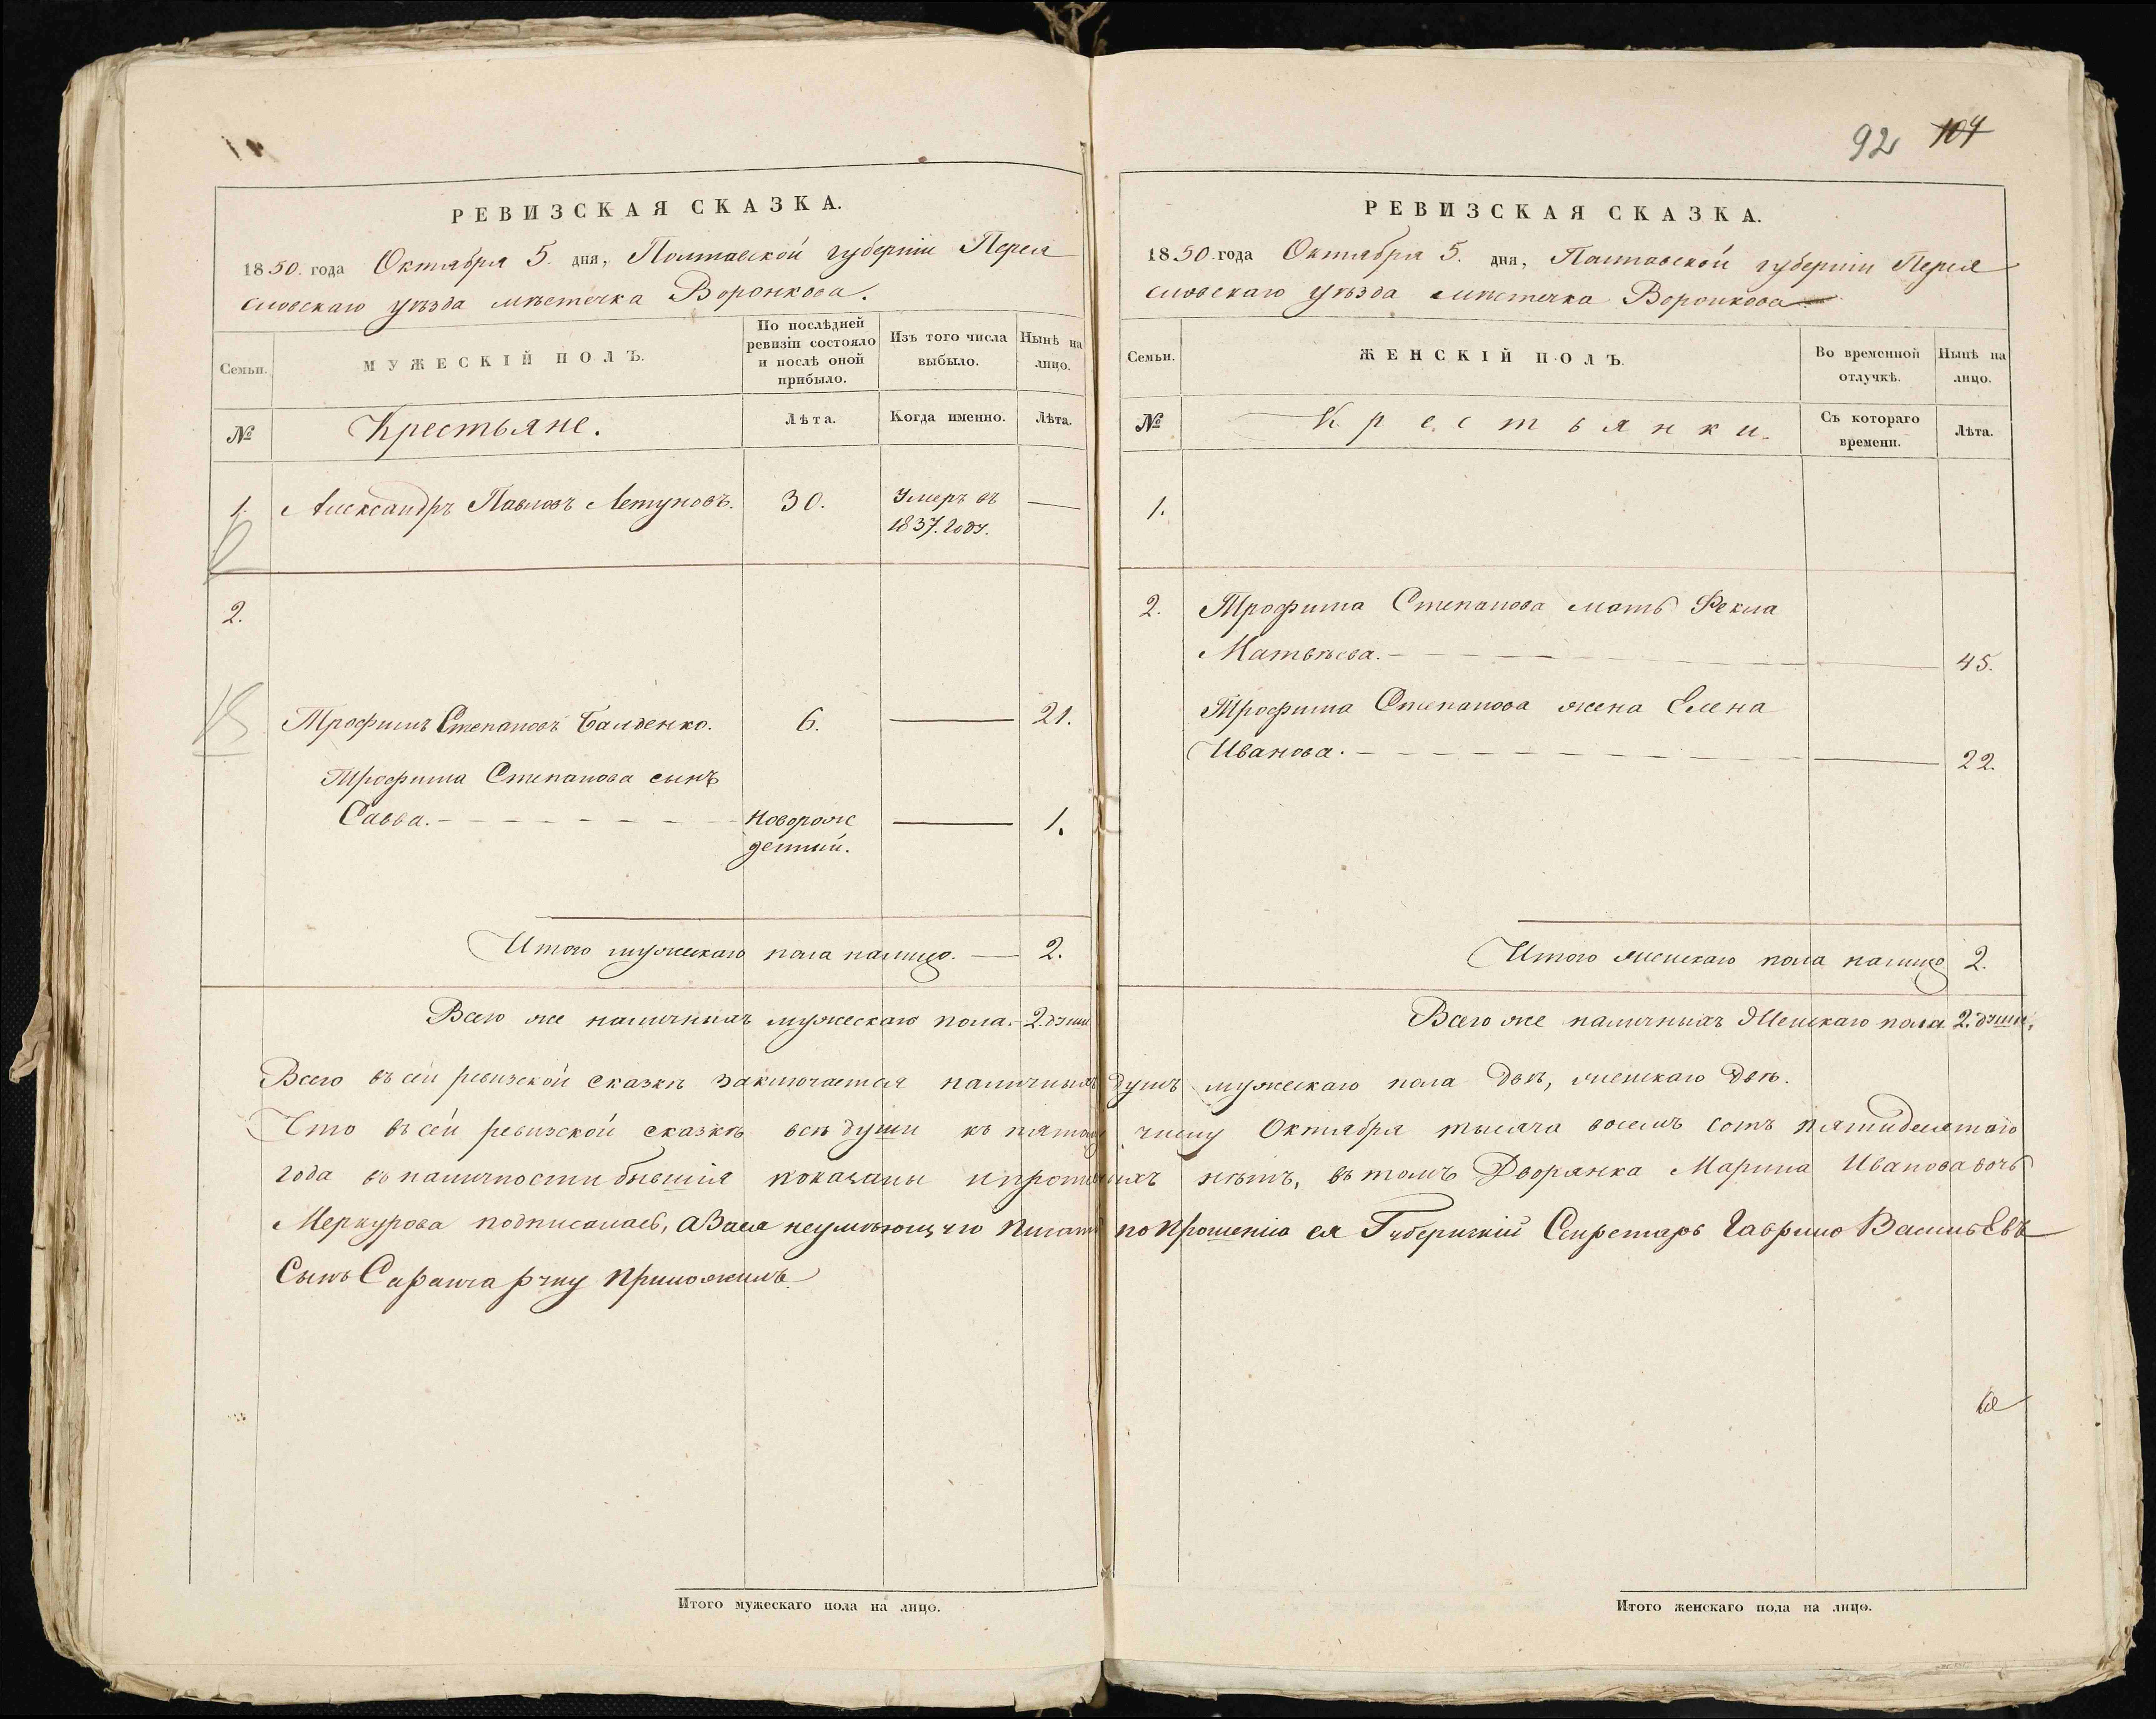 РЕВИЗСКАЯ СКАЗКА.
1850. года Октября 5. дня, Полтавской губерніи Перея
словскаго уѣзда мѣстечка Воронкова.
Семьи.
МУЖЕСКІЙ ПОЛЪ.
По послѣдней
ревизіи состояло
и послѣ оной
прибыло.
Изъ того числа
выбыло.
Нынѣ на
лицо.
№
Крестьяне.
Лѣта.
Когда именно.
Лѣта.
1. Александръ Павловъ Летуновъ. 30. Умеръ въ —
1837. году.
2.
Трофимъ Степановъ Балденко. 6. — 21.
Трофима Степанова сынъ
Савва. — новорож — 1.
денный.
Итого мужескаго пола налицо. — 2.
Всего же наличныхъ мужескаго пола. — 2. души
92 104
РЕВИЗСКАЯ СКАЗКА.
1850. года Октября 5. дня, Полтавской губерніи Перея
словскаго уѣзда мѣстечка Воронкова
Семьи.
ЖЕНСКІЙ ПОЛЪ.
Во временной
отлучкѣ.
Нынѣ на
лицо.
№
Крестьянки.
Съ котораго
времени.
Лѣта.
1.
2. Трофима Степанова мать Фекла
Матвѣева. — — 45.
Трофима Степанова жена Елена
Иванова. — — 22.
Итого женскаго пола налицо 2.
Всего же наличныхъ Женскаго пола. 2. души.
Всего въ сей ревизской сказкѣ заключается наличныхъ душъ мужескаго пола двѣ, женскаго двѣ.
Что въ сей ревизской сказкѣ всѣ души къ пятому числу Октября тысяча восемь сотъ пятидесятаго
года въ наличности бывшія показаны и прописныхъ нѣтъ, въ томъ Дворянка Марина Иванова дочь
Меркурова подписалась, а За ея неумѣющую писать по прошенію ея Губернскій Секретарь Гаврило Васильевъ
Сынъ руку приложилъ
Итого мужескаго пола на лицо.
Итого женскаго пола на лицо.